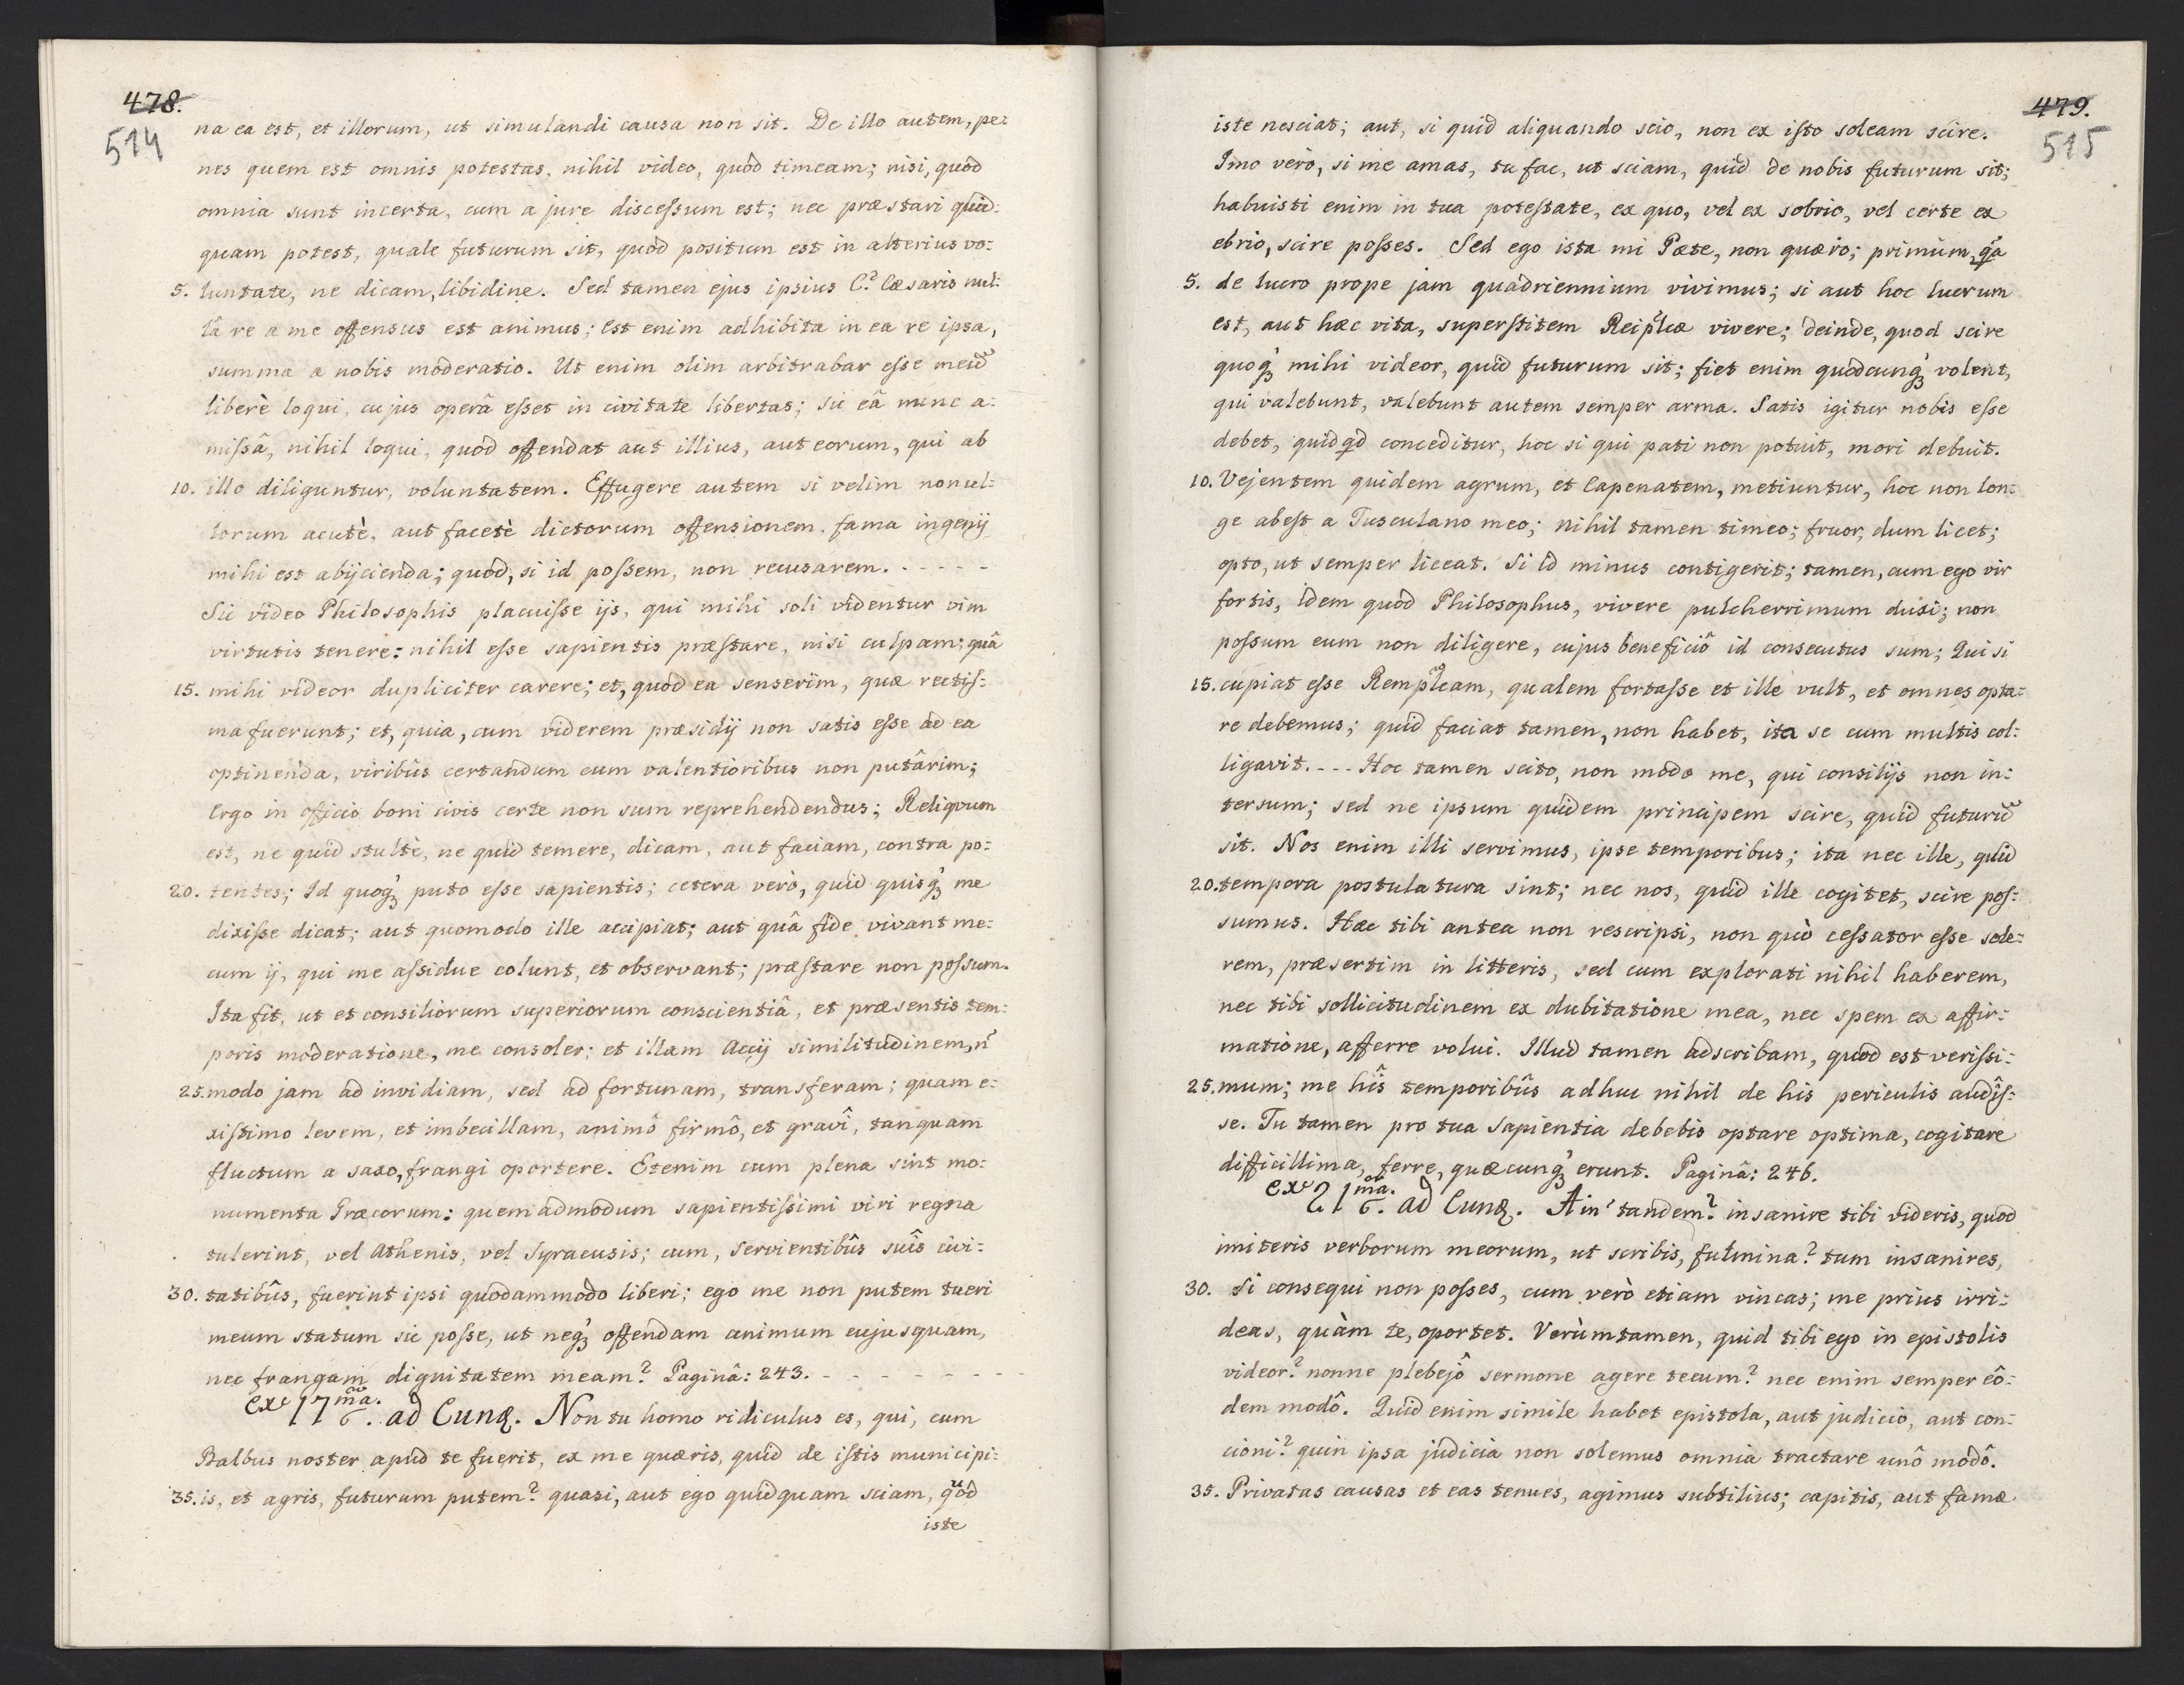 478.
514
na ea est, et illorum, ut simulandi causa non sit. De illo autem, pe:
nes quem est omnis potestas, nihil video, quòd timeam; nisi, quòd
omnia sunt incerta, cum a jure discessum est; nec præstari quid:
quam potest, quale futurum sit, quòd positum est in alterius vo:
5. luntate, ne dicam, libidine. Sed tamen ejus ipsius C? Cæsaris nul:
lâ re a me offensus est animus; est enim adhibita in ea re ipsa,
summa a nobis moderatio. Ut enim olim arbitrabar esse meũ
liberè loqui, cujus operâ esset in civitate libertas; sic eâ nunc a:
missâ, nihil loqui, quòd offendat aut illius, aut eorum, qui ab
10. illo diliguntur, voluntatem. Effugere autem si velim nonul:
lorum acutè, aut facetè dictorum offensionem, fama ingenij
mihi est abijcienda; quòd, si id possem, non recusarem. - - - - -
Sic video Philosophis placuisse ijs, qui mihi soli videntur vim
virtutis tenere: nihil esse sapientis præstare, nisi culpam; quâ
15. mihi videor dupliciter carere; et, quòd ea senserim, quæ rectis:
ma fuerunt; et, quia, cum viderem præsidij non satis esse ad ea
optinenda, viribûs certandum cum valentioribus non putârim;
Ergo in officio boni civis certe non sum reprehendendus; Reliquum
est, ne quid stultè, ne quid temere, dicam, aut faciam, contra po:
20. tentes; Id quoqꝫ puto esse sapientis; cetera verò, quid quisqꝫ me
dixisse dicat; aut quomodo ille accipiat; aut quâ fide vivant me:
cum ij, qui me assidue colunt, et observant; præstare non possum.
Ita fit, ut et consiliorum superiorum conscientiâ, et præsentis tem:
poris moderatione, me consoler; et illam Accij similitudinem, ñ
25. modo jam ad invidiam, sed ad fortunam, transferam; quam e:
xistimo levem, et imbecillam, animô firmô, et gravî, tanquam
fluctum a saxo, frangi oportere. Etenim cum plena sint mo:
numenta Græcorum: quemadmodum sapientissimi viri regna
tulerint, vel Athenis, vel Syracusis; cum, servientibûs suîs civi:
30. tatibûs, fuerint ipsi quodammodo liberi; ego me non putem tueri
meum statum sic posse, ut neqꝫ offendam animum cujusquam,
nec frangam dignitatem meam? Paginâ: 243. - - - - - - - -
Ex 17 mã. 6. ad Eunđ. Non tu homo ridiculus es, qui, cum
Balbus noster apud te fuerit, ex me quæris, quid de istis municipi:
35. is, et agris, futurum putem? quasi, aut ego quidquam sciam, quòd
iste
479.
515
iste nesciat; aut, si quid aliquando scio, non ex isto soleam scire.
Imo verò, si me amas, tu fac, ut sciam, quid de nobis futurum sit;
habuisti enim in tua potestate, ex quo, vel ex sobrio, vel certe ex
ebrio, scire posses. Sed ego ista mi Pæte, non quæro; primùm, qa
5. de lucro prope jam quadriennium vivimus; si aut hoc lucrum
est, aut hæc vita, superstitem Reiplcæ vivere; deinde, quod scire
quoqꝫ mihi videor, quid futurum sit; fiet enim quodcunqꝫ volent,
qui valebunt, valebunt autem semper arma. Satis igitur nobis esse
debet, quidqd conceditur, hoc si qui pati non potuit, mori debuit.
10. Vejentem quidem agrum, et Capenatem, metiuntur, hoc non lon:
ge abest a Tusculano meo; nihil tamen timeo; fruor, dum licet;
opto, ut semper liceat. Si id minus contigerit; tamen, cum ego vir
fortis, idem quòd Philosophus, vivere pulcherrimum duxi; non
possum eum non diligere, cujus beneficiô id consecutus sum; Qui si
15. cupiat esse Remplcam, qualem fortasse et ille vult, et omnes opta:
re debemus; quid faciat tamen, non habet, ita se cum multis col:
ligavit. - - - Hoc tamen scito, non modo me, qui consilijs non in:
tersum; sed ne ipsum quidem principem scire, quid futurũ
sit. Nos enim illi servimus, ipse temporibus; ita nec ille, quid
20. tempora postulatura sint; nec nos, quid ille cogitet, scire pos:
sumus. Hæc tibi antea non rescripsi, non quò cessator esse sole:
rem, præsertim in litteris, sed cum explorati nihil haberem,
nec tibi sollicitudinem ex dubitatione mea, nec spem ex affir:
matione, afferre volui. Illud tamen adscribam, quòd est verissi:
25. mum; me hîs temporibûs adhuc nihil de his periculis audîs:
se. Tu tamen pro tua sapientia debebis optare optima, cogitare
difficillima, ferre, quæcunqꝫ erunt. Paginâ: 246.
Ex 21 mã. 6. ad Eunđ. Ain' tandem? insanire tibi videris, quod
imiteris verborum meorum, ut scribis, fulmina? tum insanires,
30. Si consequi non posses, cum verò etiam vincas; me prius irri:
deas, quàm te, oportet. Verùmtamen, quid tibi ego in epistolis
videor? nonne plebejô sermone agere tecum? nec enim semper eô:
dem modô. Quid enim simile habet epistola, aut judicio, aut con:
cioni? quin ipsa judicia non solemus omnia tractare unô modô.
35. Privatas causas et eas tenues, agimus subtilius; capitis, aut famæ